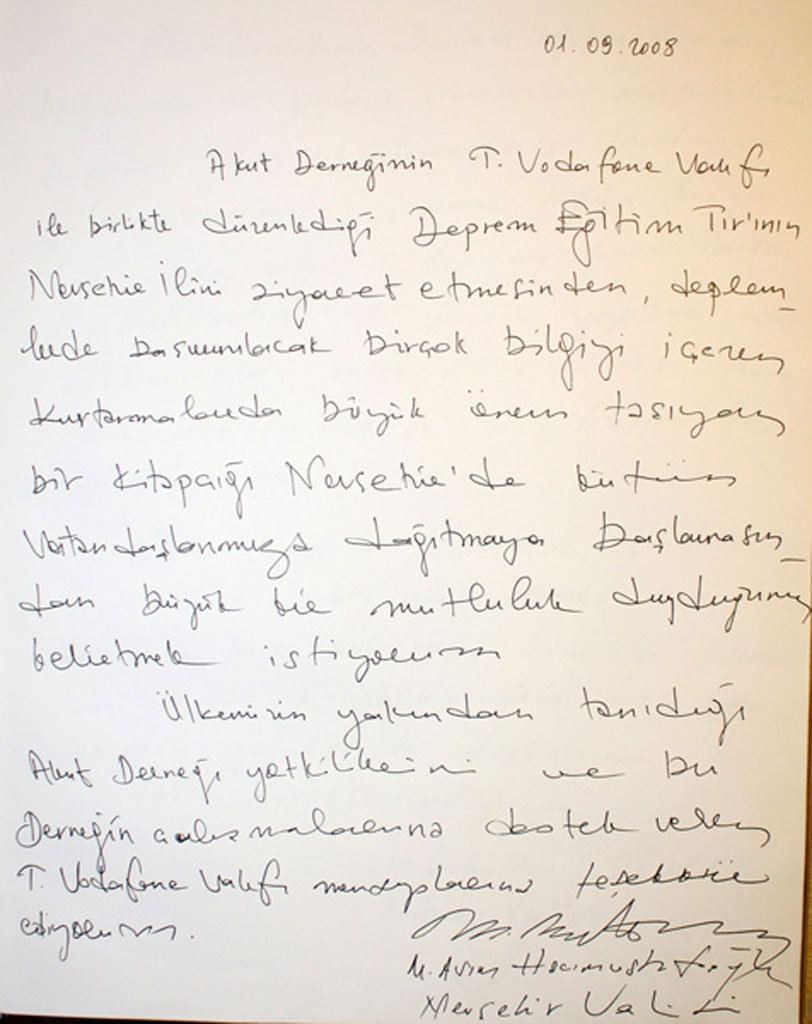 01.09.2008
Akut Derneğinin T. Vodafone Vakfı
ile birlikte düzenlediği Deprem Eğitim Tır'ının
Nevşehir İlini ziyaret etmesinden, deprem_
lerde başvurulacak birçok bilgiyi içeren
Kurtarmalarda büyük önem taşıyan
bir kitapçığı Nevşehir'de bütün
Vatandaşlarımıza dağıtmaya başlamasın_
dan büyük bir mutluluk duyduğumu
belirtmek istiyorum
Ülkemizin yakından tanıdığı
Akut Derneği yetkililerini ve bu
Derneğin çalışmalarına destek veren
T. Vodafone Vakfı mensuplarına teşekkür
ediyorum.
M. Asım Hacımustafaoğlu
Nevşehir Valisi